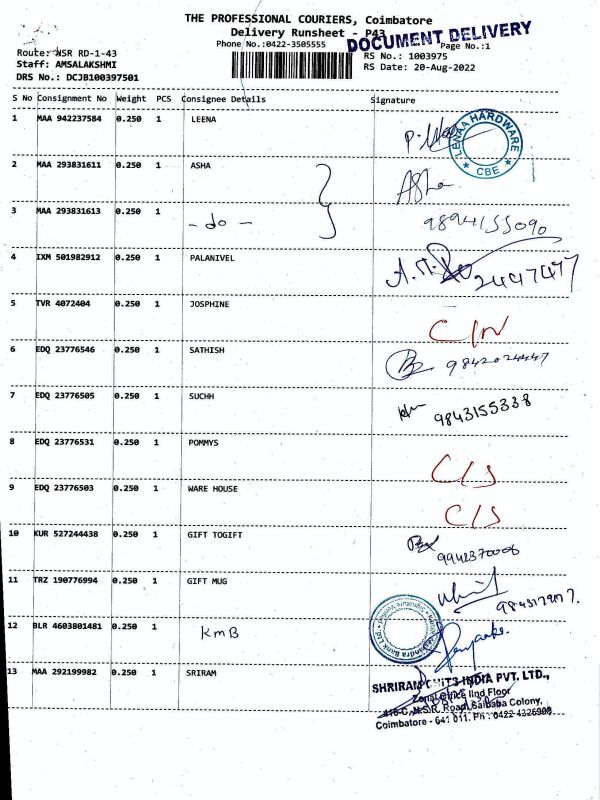 THE PROFESSIONAL COURIERS, Coimbatore
Delivery Runsheet - P43
DOCUMENT DELIVERY
Phone No.:0422-3505555
Page No.:1
Route: NSR RD-1-43
RS No.: 1003975
Staff: AMSALAKSHMI
RS Date: 20-Aug-2022
DRS No.: DCJB100397501
S No Consignment No Weight PCS Consignee Details Signature
1 MAA 942237584 0.250 1 LEENA
LEENAA HARDWARE
★ CBE ★
2 MAA 293831611 0.250 1 ASHA Asha
3 MAA 293831613 0.250 1 - do - 9894155090
4 IXM 501982912 0.250 1 PALANIVEL 2447477
5 TVR 4072404 0.250 1 JOSPHINE C/N
6 EDQ 23776546 0.250 1 SATHISH 9842024447
7 EDQ 23776505 0.250 1 SUCHH 9843155338
8 EDQ 23776531 0.250 1 POMMYS C/S
9 EDQ 23776503 0.250 1 WARE HOUSE C/S
10 KUR 527244438 0.250 1 GIFT TOGIFT 9942370006
11 TRZ 190776994 0.250 1 GIFT MUG
12 BLR 4603801481 0.250 1 KMB
13 MAA 292199982 0.250 1 SRIRAM
SHRIRAM CHITS INDIA PVT. LTD.,
Zonal Office IInd Floor
N.S.R. Road, Saibaba Colony,
Coimbatore - 641 011. Ph : 0422 4326908